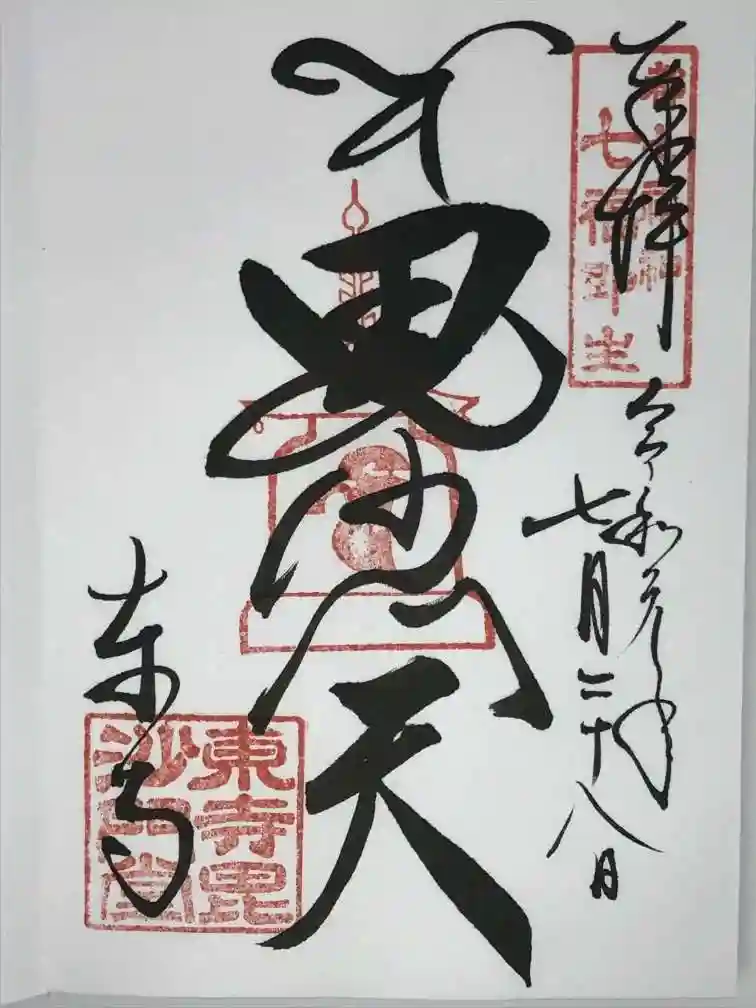 奉拝
七福即生
令和元年
七月二十八日
毘沙門天
東寺
東寺毘
沙門堂